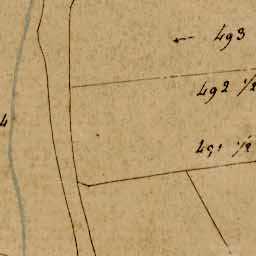 493
492 1/2
4
491 1/2